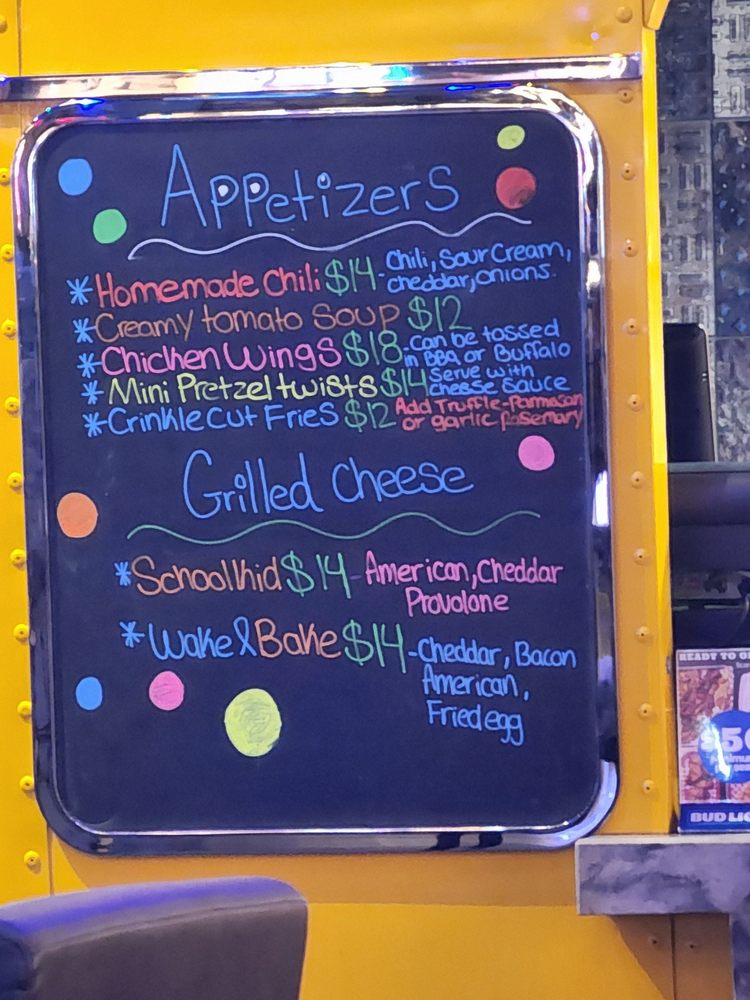 Appetizers
*Homemade Chili $14-Chili, Sour Cream,
cheddar, onions.
*Creamy tomato Soup $12
*Chicken Wings $18-can be tossed
in BBQ or Buffalo
*Mini Pretzel twists $14 Serve with
cheese sauce
*Crinkle Cut Fries $12 Add Truffle-Parmasan
or garlic Rosemary
Grilled Cheese
*School kid $14-American, Cheddar
Provolone
*Wake & Bake $14-Cheddar, Bacon
American,
Fried egg
READY TO
BUD